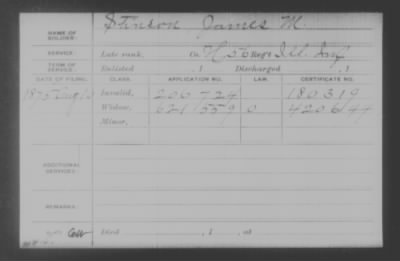 NAME OF SOLDIER: Stinson, James M.
SERVICE: Late rank, Co. H, 56 Reg't Ill. Inf.
TERM OF SERVICE: Enlisted , 1 Discharged , 1
DATE OF FILING. CLASS. APPLICATION NO. LAW. CERTIFICATE NO.
1875 Aug Invalid, 206 724 180319
Widow, 621 559 0 420644
Minor,
ADDITIONAL SERVICES:
REMARKS:
Died , 1 , at